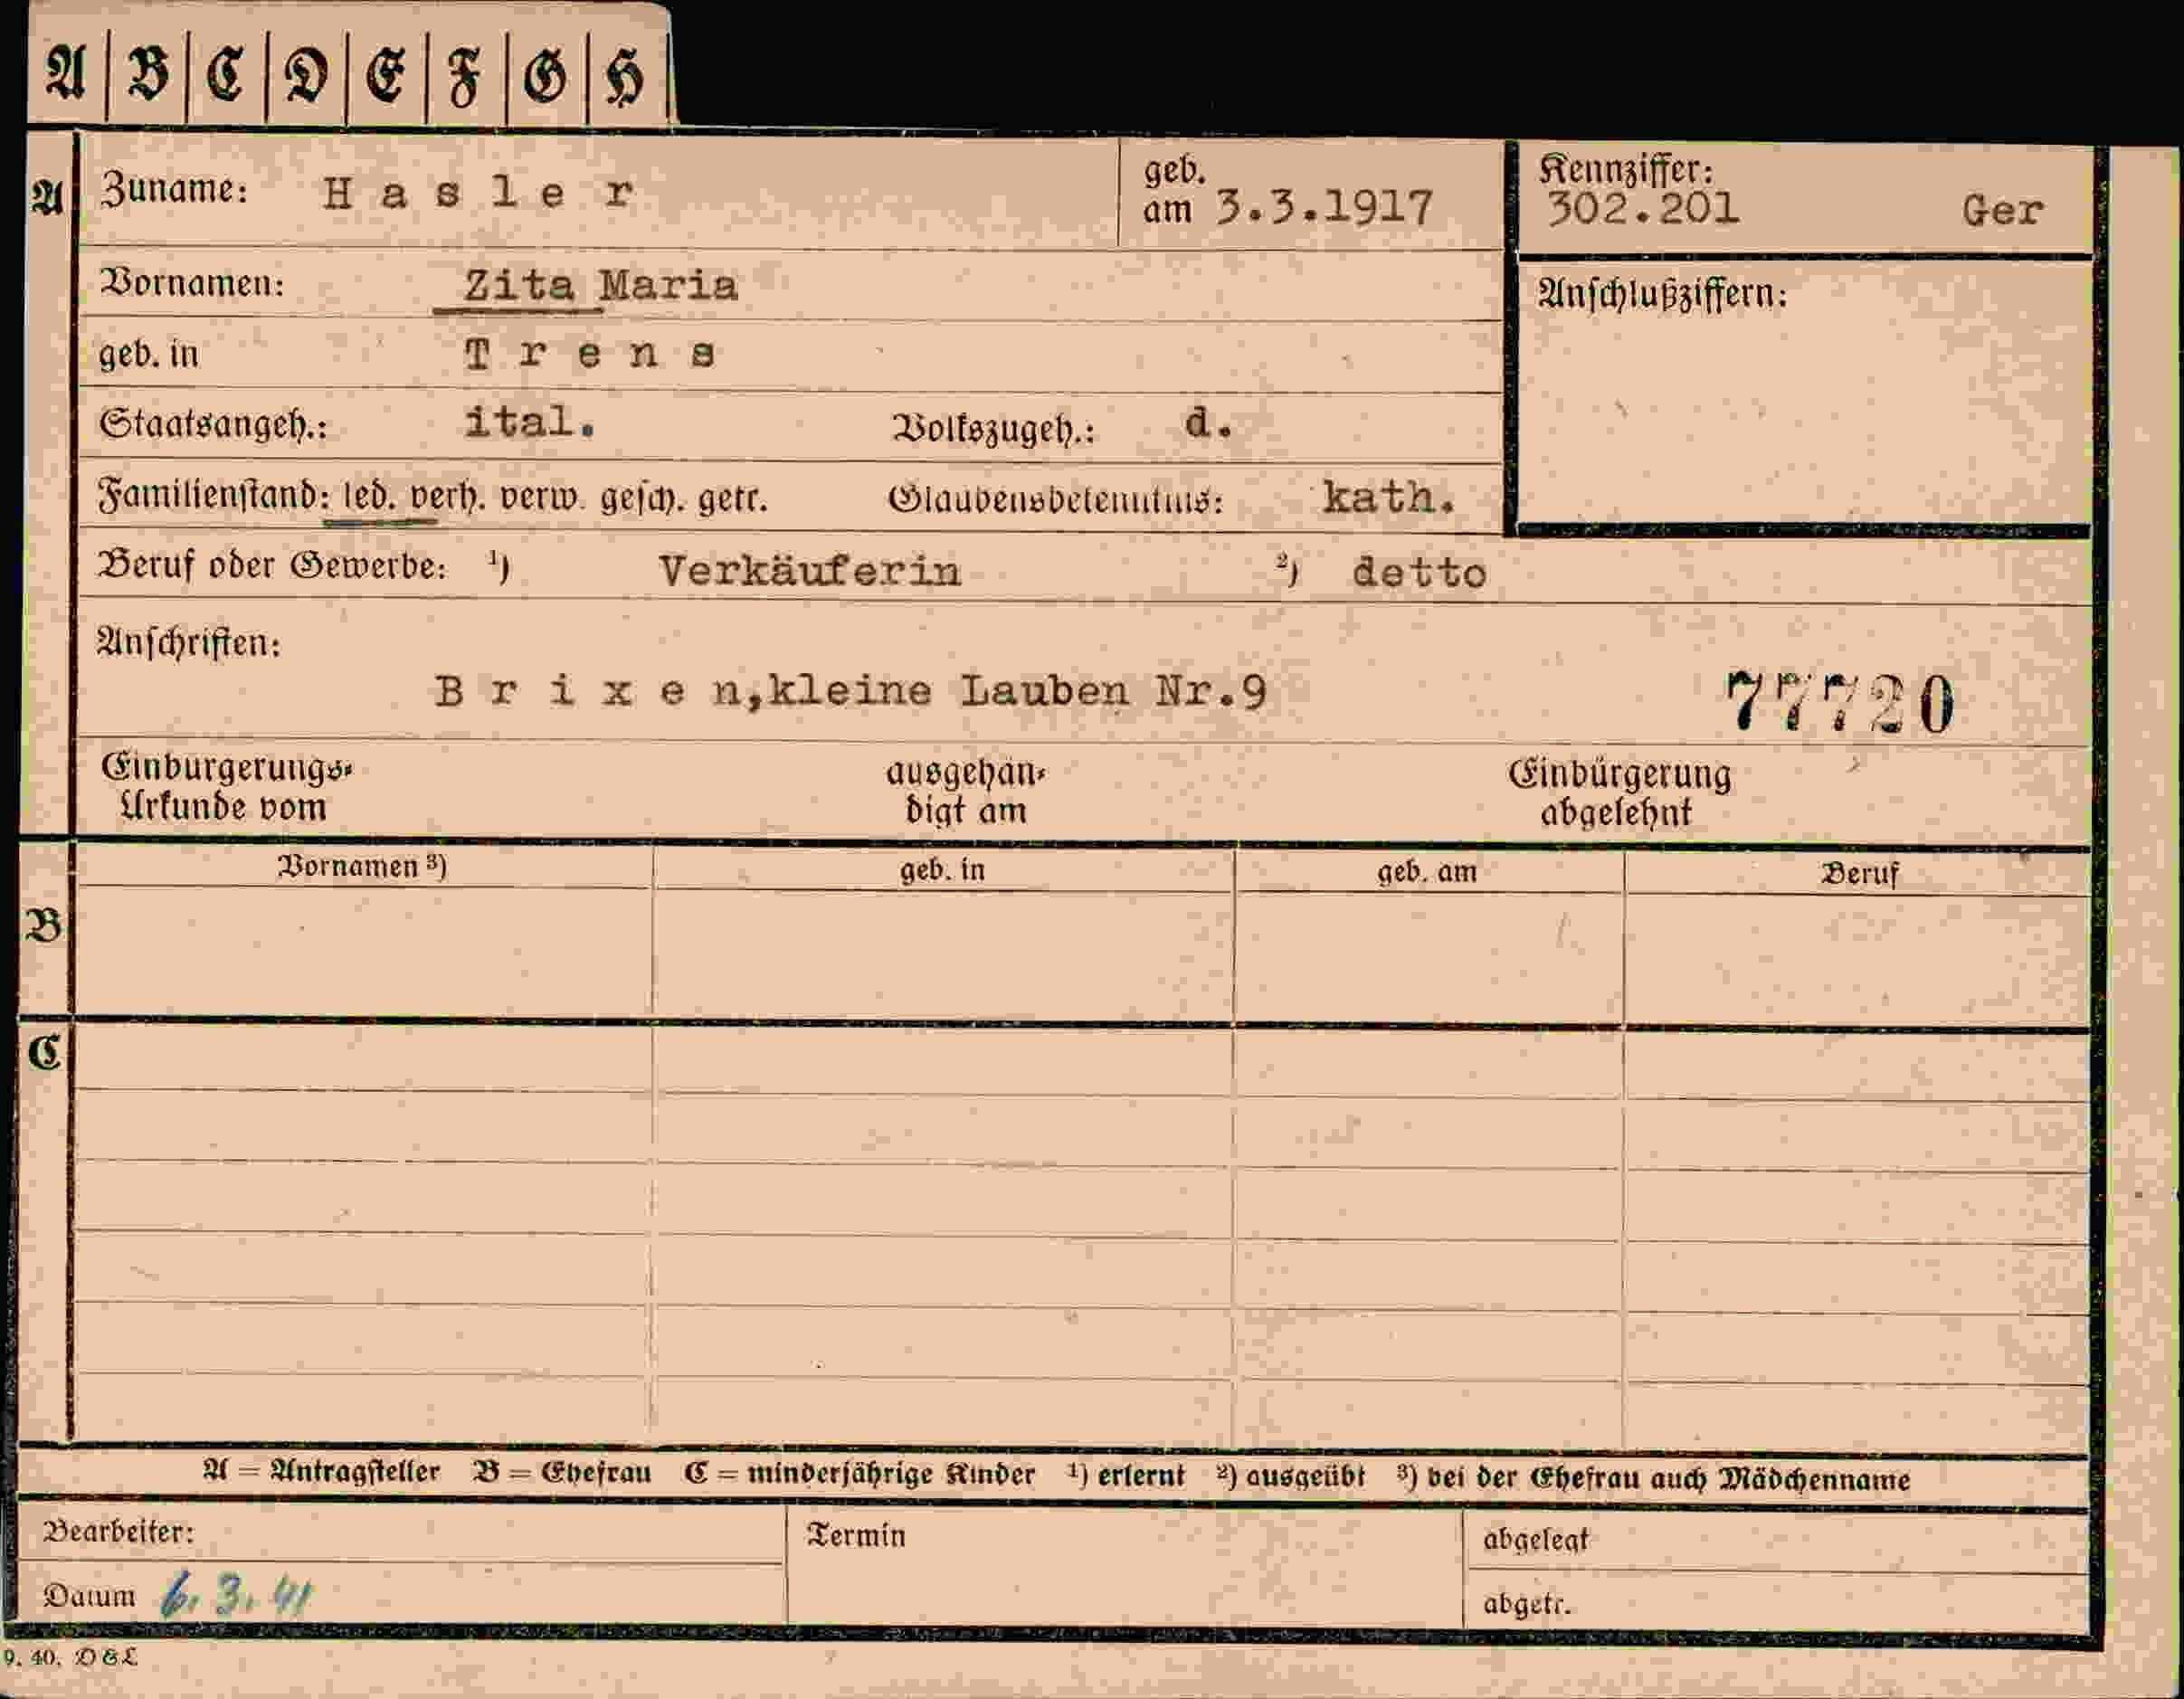 A B C D E F G H
A Zuname: Hasler geb. am 3.3.1917 Kennziffer: 302.201 Ger
Vornamen: Zita Maria Anschlußziffern:
geb. in Trens
Staatsangeh.: ital. Volkszugeh.: d.
Familienstand: led. verh. verw. gesch. getr. Glaubensbekenntnis: kath.
Beruf oder Gewerbe: 1) Verkäuferin 2) detto
Anschriften:
Brixen,kleine Lauben Nr.9 77720
Einbürgerungs- ausgehän- Einbürgerung
Urkunde vom digt am abgelehnt
Vornamen 3) geb. in geb. am Beruf
B
C
A = Antragsteller B = Ehefrau C = minderjährige Kinder 1) erlernt 2) ausgeübt 3) bei der Ehefrau auch Mädchenname
Bearbeiter: Termin abgelegt
Datum 6.3.41 abgetr.
9. 40. D&L